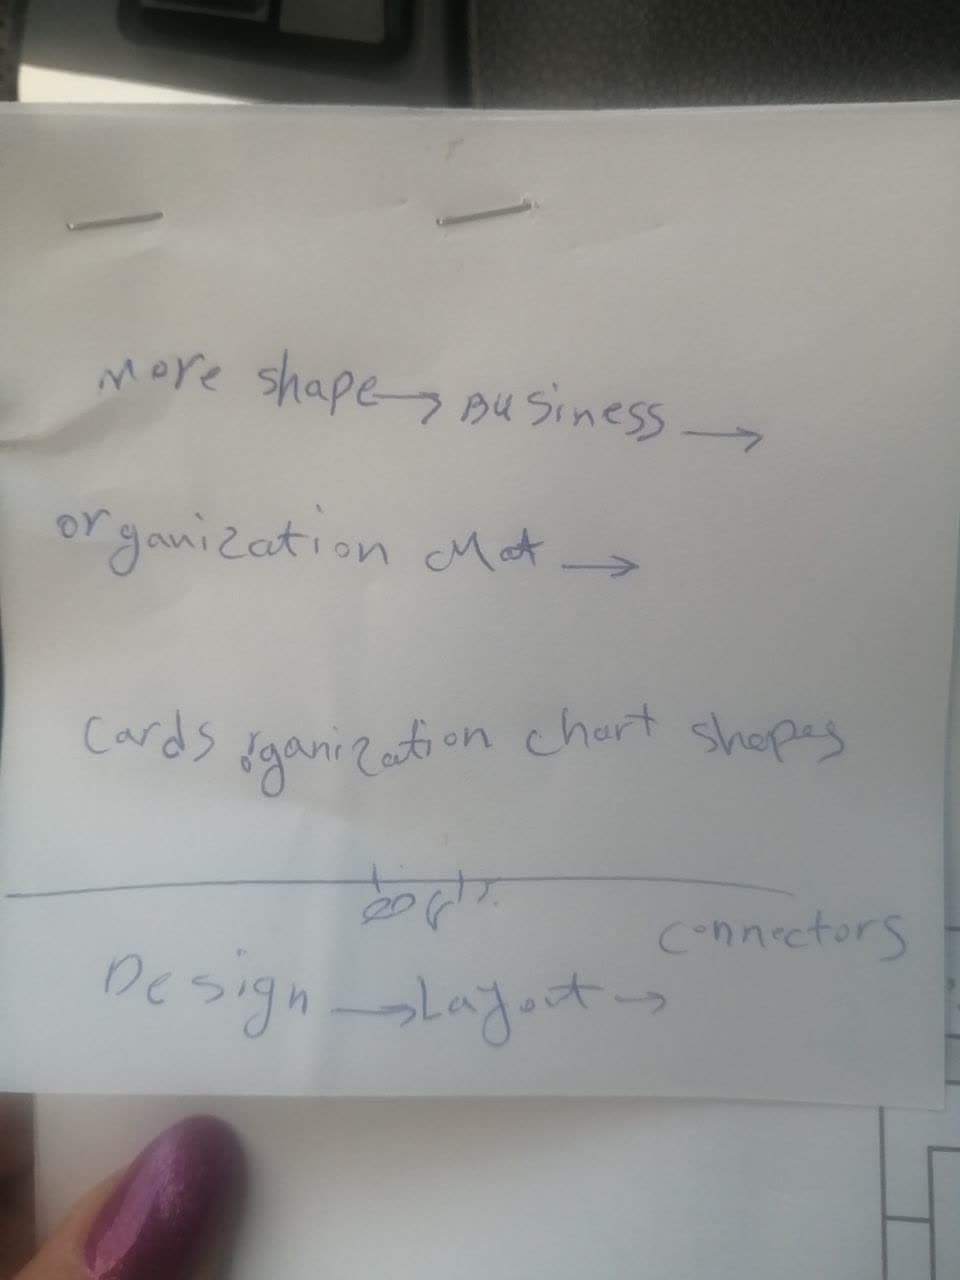 More shape → Business →
organization →
Cards organization chart shapes
connectors
Design → Layout →